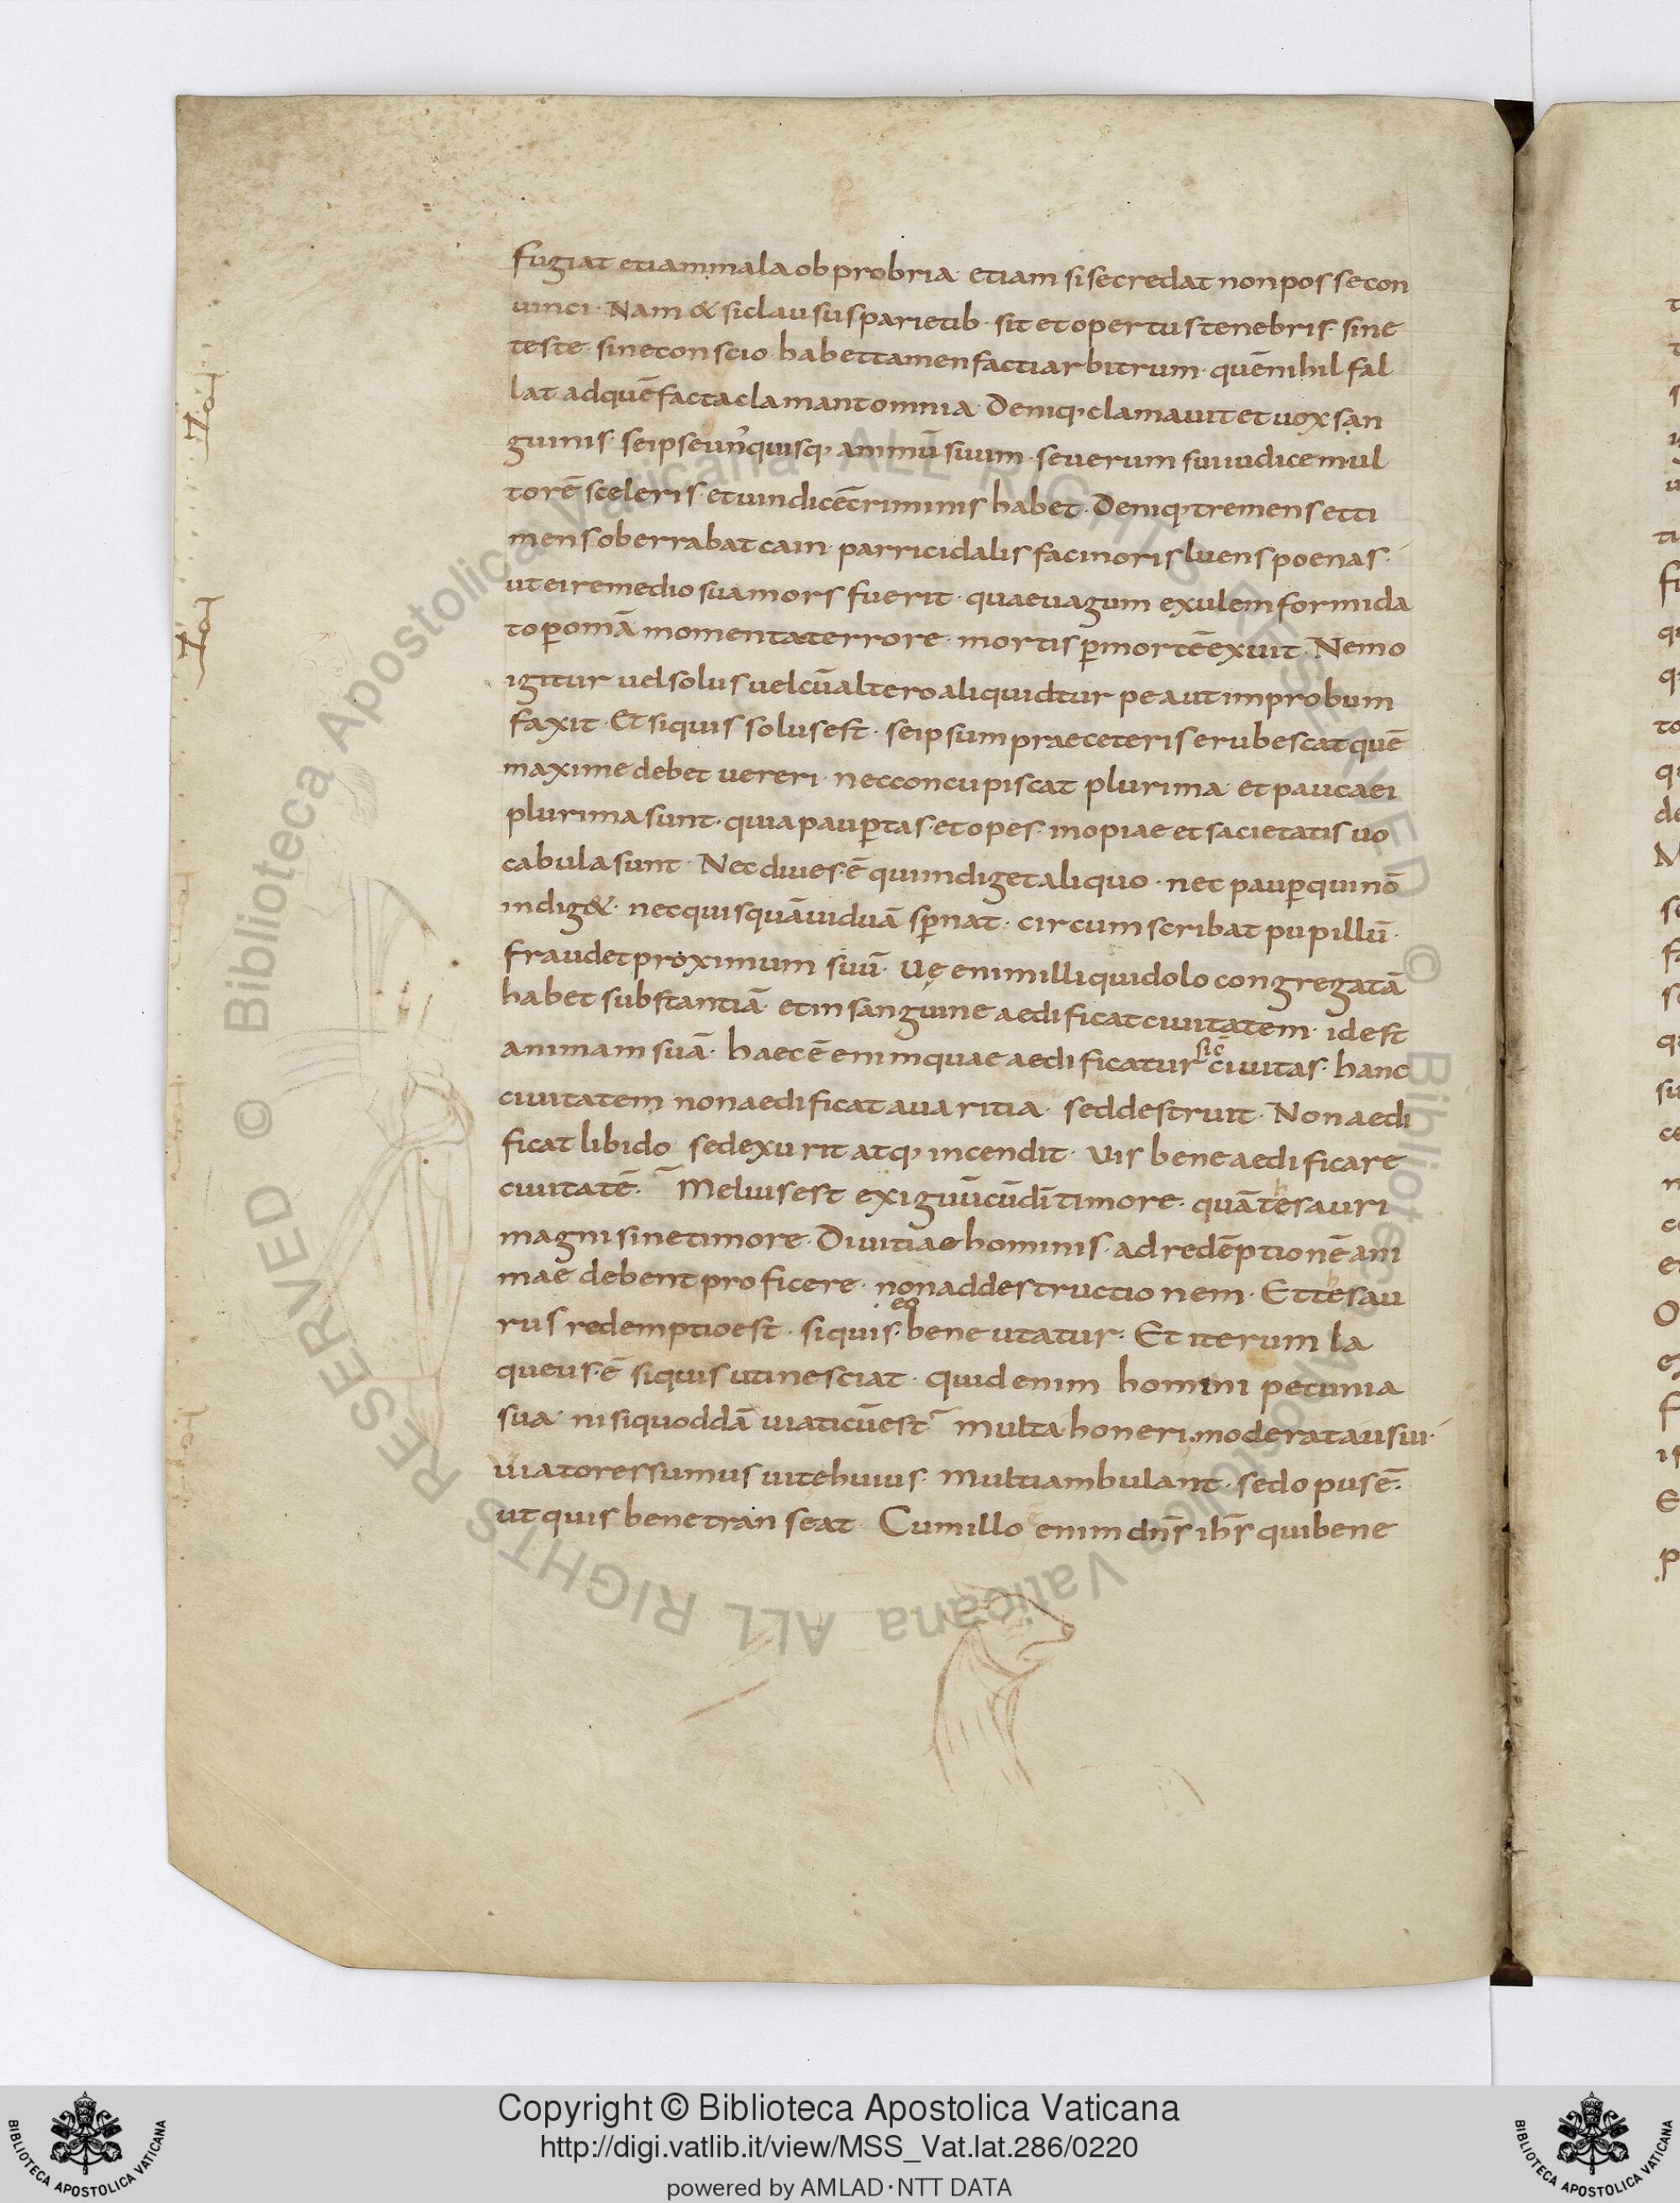 fugiat etiam mala obprobria etiam si se credat non posse con
uinci· Nam & si clausus parietib· sit et opertus tenebris· sine
teste· sine conscio habet tamen facti arbitrum· quē nihil fal
lat ad quē facta clamant omnia· Deniq· clamauit et uox san
guinis· se ipse unusquisq· animū suum· seuerum sui iudicem ul
torē sceleris· et uindicē criminis habet· Deniq· tremens et ti
mens oberrabat cain parricidalis facinoris luens poenas·
ut ei remedio sua mors fuerit· quae uagum exulem formida
to p omā momenta terrore· mortis p mortē exuit· Nemo
igitur uel solus uel cū altero aliquid turpe aut improbum
faxit· Et si quis solus est· se ipsum prae ceteris erubescat quē
maxime debet uereri· nec concupiscat plurima et pauca ei
plurima sunt· quia paup̄tas· et opes· inopiae et sacietatis uo
cabula sunt· Nec diues ē qui indiget aliquo· nec paup̄ qui nō
indig&· nec quisquā uiduā sp̄nat· circumscribat pupillū·
fraudet proximum suū· Uę enim illi qui dolo congregatā
habet substantiā et in sanguine aedificat ciuitatem· id est
animam suā· haec ē enim quae aedificatur sic̄ ciuitas· hanc
ciuitatem non aedificat auaritia· sed destruit· Non aedi
ficat libido sed exurit atq· incendit· Uis bene aedificare
ciuitatē· Melius est exiguū cū dī timore· quā thesauri
magni sine timore· Diuitiae hominis· ad redēptionē ani
mae debent proficere· non ad destructionem· Et thesau
rus redemptio est· si quis· eo bene utatur· Et iterum la
queus ē si quis uti nesciat· quid enim homini pecunia
sua nisi quoddā uiaticū est Multa honeri moderata usui·
uiatores sumus uite huius· Multi ambulant· sed opus ē·
ut quis bene transeat· Cum illo enim dn̄s ih̄s qui bene
Copyright © Biblioteca Apostolica Vaticana
http://digi.vatlib.it/view/MSS_Vat.lat.286/0220
powered by AMLAD·NTT DATA
BIBLIOTECA APOSTOLICA VATICANA
BIBLIOTECA APOSTOLICA VATICANA
© Biblioteca Apostolica Vaticana ALL RIGHTS RESERVED © Biblioteca Apostolica Vaticana ALL RIGHTS RESERVED